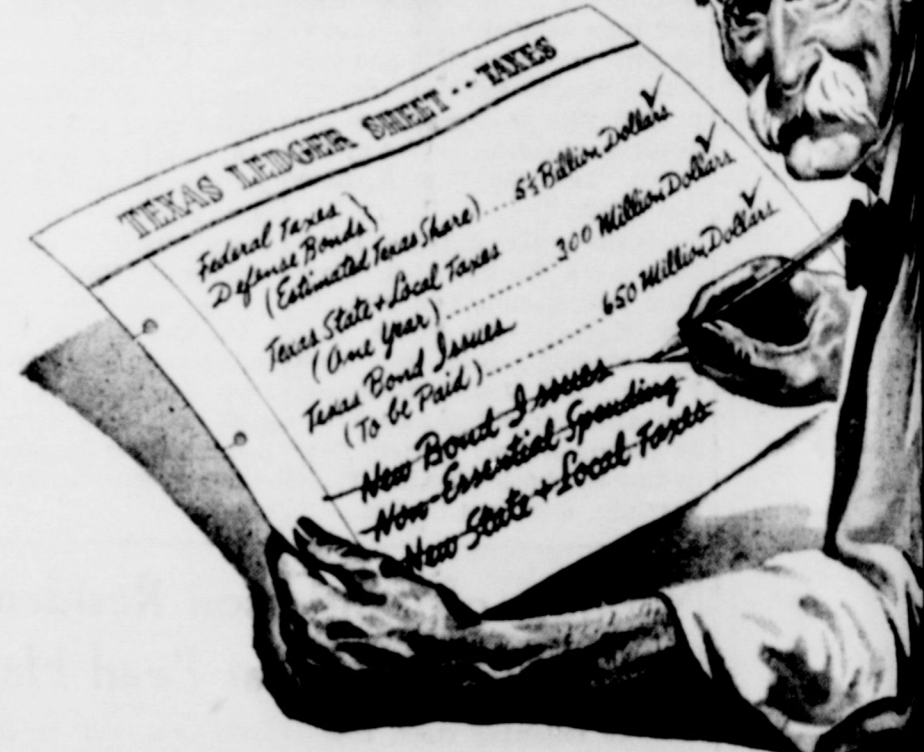 TEXAS LEDGER SHEET -- TAXES
Federal Taxes
Defense Bonds
(Estimated Texas Share).... 5½ Billion Dollars
Texas State & Local Taxes
(One Year)............ 300 Million Dollars
Texas Bond Issues
(To be Paid)............ 650 Million Dollars
New Bond Issues
Non-Essential Spending
New State & Local Taxes